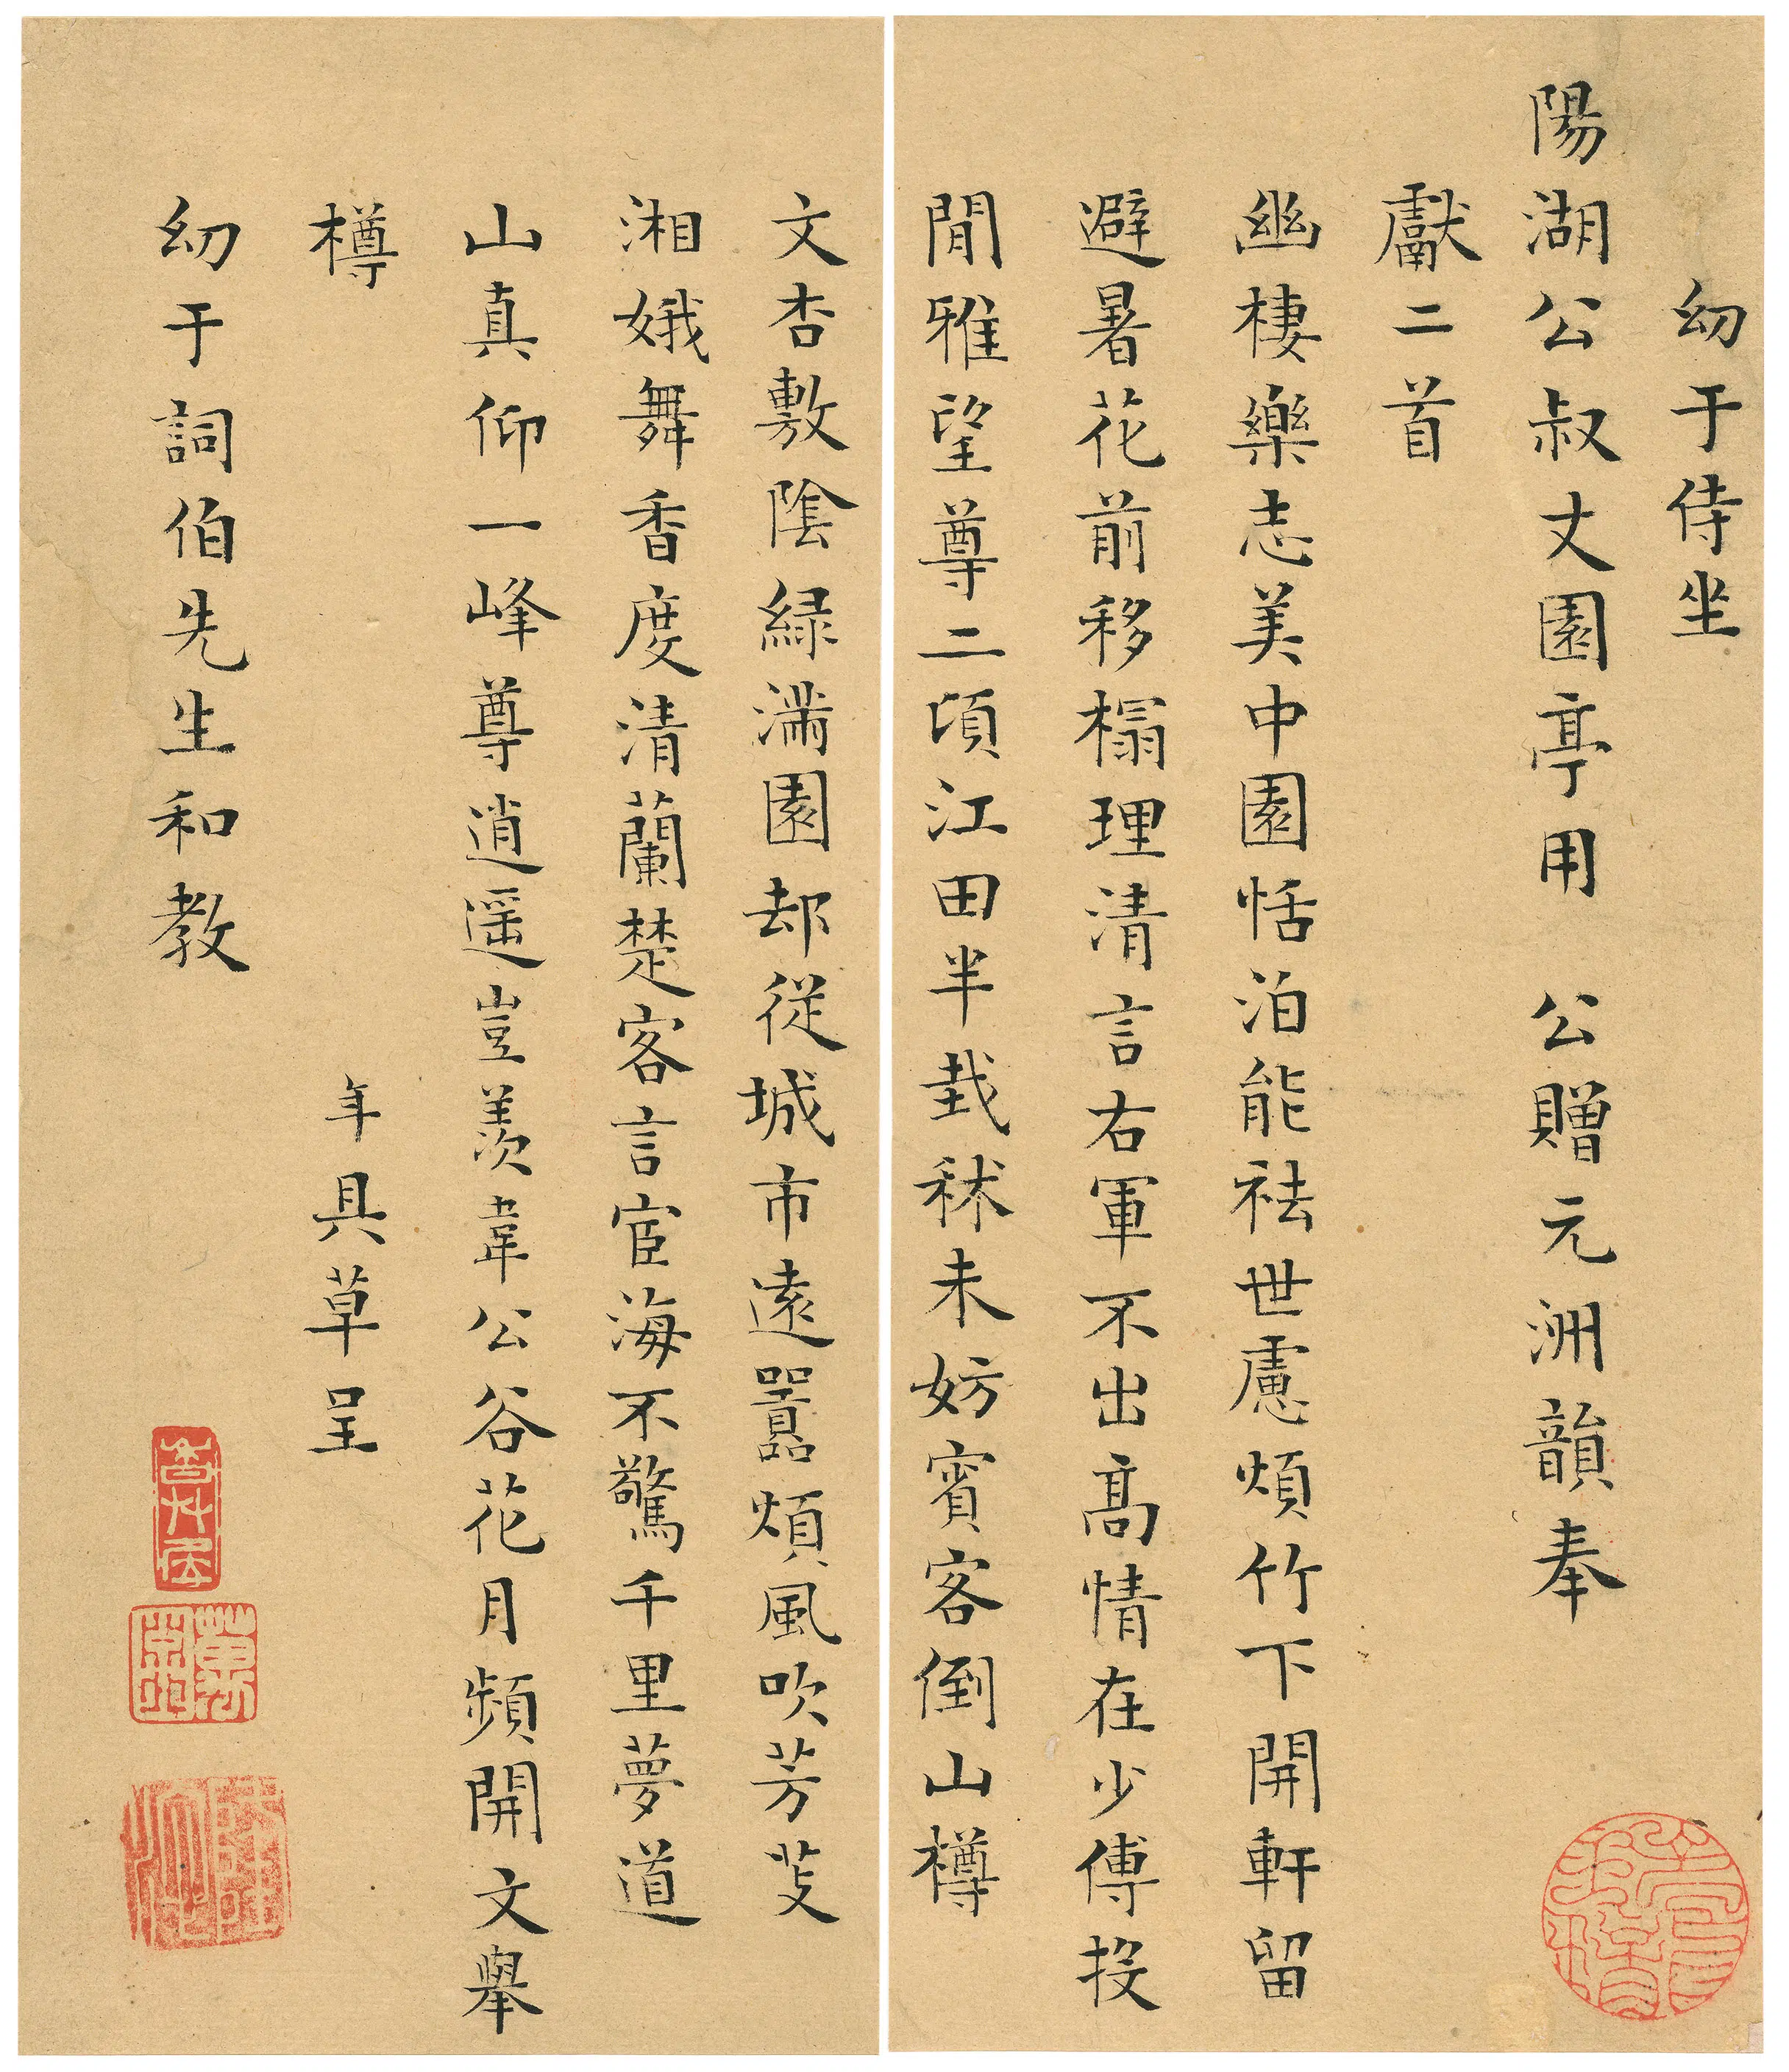 幼于侍坐
陽湖公叔丈園亭用　公贈元洲韻奉
獻二首
幽棲樂志美中園恬泊能袪世慮煩竹下開軒留
避暑花前移榻理清言右軍不出高情在少傅投
閒雅望尊二頃江田半栽秫未妨賓客倒山樽
文杏敷陰緑滿園却從城市遠囂煩風吹芳芰
湘娥舞香度清蘭楚客言宦海不驚千里夢道
山真仰一峰尊逍遥豈羨韋公谷花月頻開文舉
樽
年具草呈
幼于詞伯先生和教